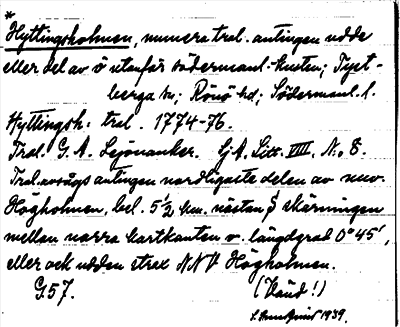 *
Hyttingsholmen, numera trol. antingen udde
eller del av ö utanför södermanl.-kusten; Tyst-
berga sn; Rönö hd; Södermanl. l.
Hyttingsh. trol. 1774-76.
Trol. G. A. Lejonanker. SjA. Litt. VIII. N:o 8.
Trol. avsågs antingen nordligaste delen av nuv.
Högholmen, bel. 5 1/2 km. nästan S skärningen
mellan norra kartkanten o. längdgrad 0°45',
eller ock udden strax NNV Högholmen.
G.57. (Känd!)
1939.